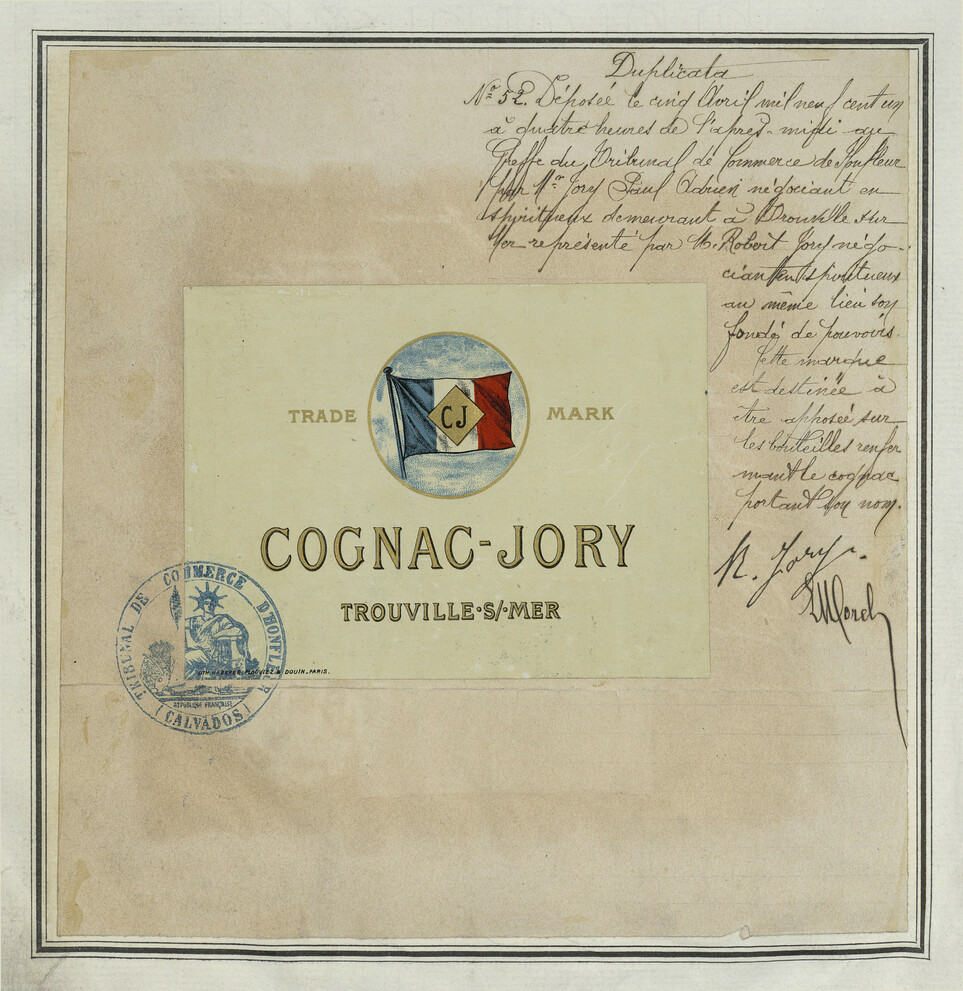 Duplicata
N° 52. Déposée le cinq Avril mil neuf cent un
à quatre heures de l'après-midi au
Greffe du Tribunal de Commerce de Honfleur
par Mr Jory Paul Adrien négociant en
spiritueux demeurant à Trouville sur
Mer représenté par M. Robert Jory négo-
ciant en spiritueux
au même lieu son
fondé de pouvoirs.
Cette marque
est destinée à
être apposée sur
les bouteilles renfer
mant le cognac
portant son nom.
R. Jory
Morel
TRADE MARK
CJ
COGNAC-JORY
TROUVILLE·S/·MER
DOUIN.PARIS.
TRIBUNAL DE COMMERCE D'HONFLEUR
RÉPUBLIQUE FRANÇAISE
(CALVADOS)